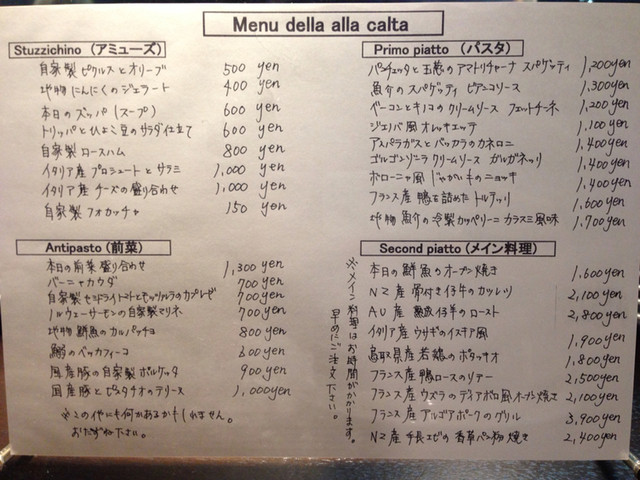 Menu della alla calta
Stuzzichino (アミューズ)
自家製 ピクルスとオリーブ 500 yen
地物 にんにくのジェラート 400 yen
本日の ズッパ (スープ) 600 yen
トリッパとひよこ豆のサラダ仕立て 600 yen
自家製 ロースハム 800 yen
イタリア産 プロシュートとサラミ 1,000 yen
イタリア産 チーズの盛り合わせ 1,000 yen
自家製 フォカッチャ 150 yen
Antipasto (前菜)
本日の前菜盛り合わせ 1,300 yen
バーニャカウダ 700 yen
自家製セミドライトマトとモッツァレラのカプレーゼ 700 yen
ノルウェーサーモンの自家製マリネ 700 yen
地物 鮮魚のカルパッチョ 800 yen
鰯のベッカフィーコ 600 yen
国産豚の自家製ポルケッタ 900 yen
国産豚とピスタチオのテリーヌ 1,000 yen
※この他にも何かあるかもしれません。
おたずね下さい。
Primo piatto (パスタ)
パンチェッタと玉葱のアマトリチャーナ スパゲッティ 1,200 yen
魚介の スパゲッティ ビアンコソース 1,300 yen
ベーコンとキノコのクリームソース フェットチーネ 1,200 yen
ジェノバ風 オレキエッテ 1,100 yen
アスパラガスとバッカラのカネロニ 1,400 yen
ゴルゴンゾーラ クリームソース ガルガネッリ 1,400 yen
ボローニャ風 じゃがいものニョッキ 1,400 yen
フランス産 鴨を詰めた トルテッリ 1,600 yen
地物 魚介の冷製カッペリーニ カラスミ風味 1,700 yen
Second piatto (メイン料理)
本日の 鮮魚のオーブン焼き 1,600 yen
NZ産 骨付き仔牛のカツレツ 2,100 yen
AU産 仔羊のロースト 2,800 yen
イタリア産 ウサギのイスキア風 1,900 yen
鳥取県産 若鶏のポタッキオ 1,800 yen
フランス産 鴨ロースのソテー 2,500 yen
フランス産 ウズラのディアボロ風オーブン焼き 2,100 yen
フランス産 ポークのグリル 3,900 yen
NZ産 手長エビの香草パン粉焼き 2,400 yen
※メイン料理はお時間がかかります。
早めにご注文下さい。